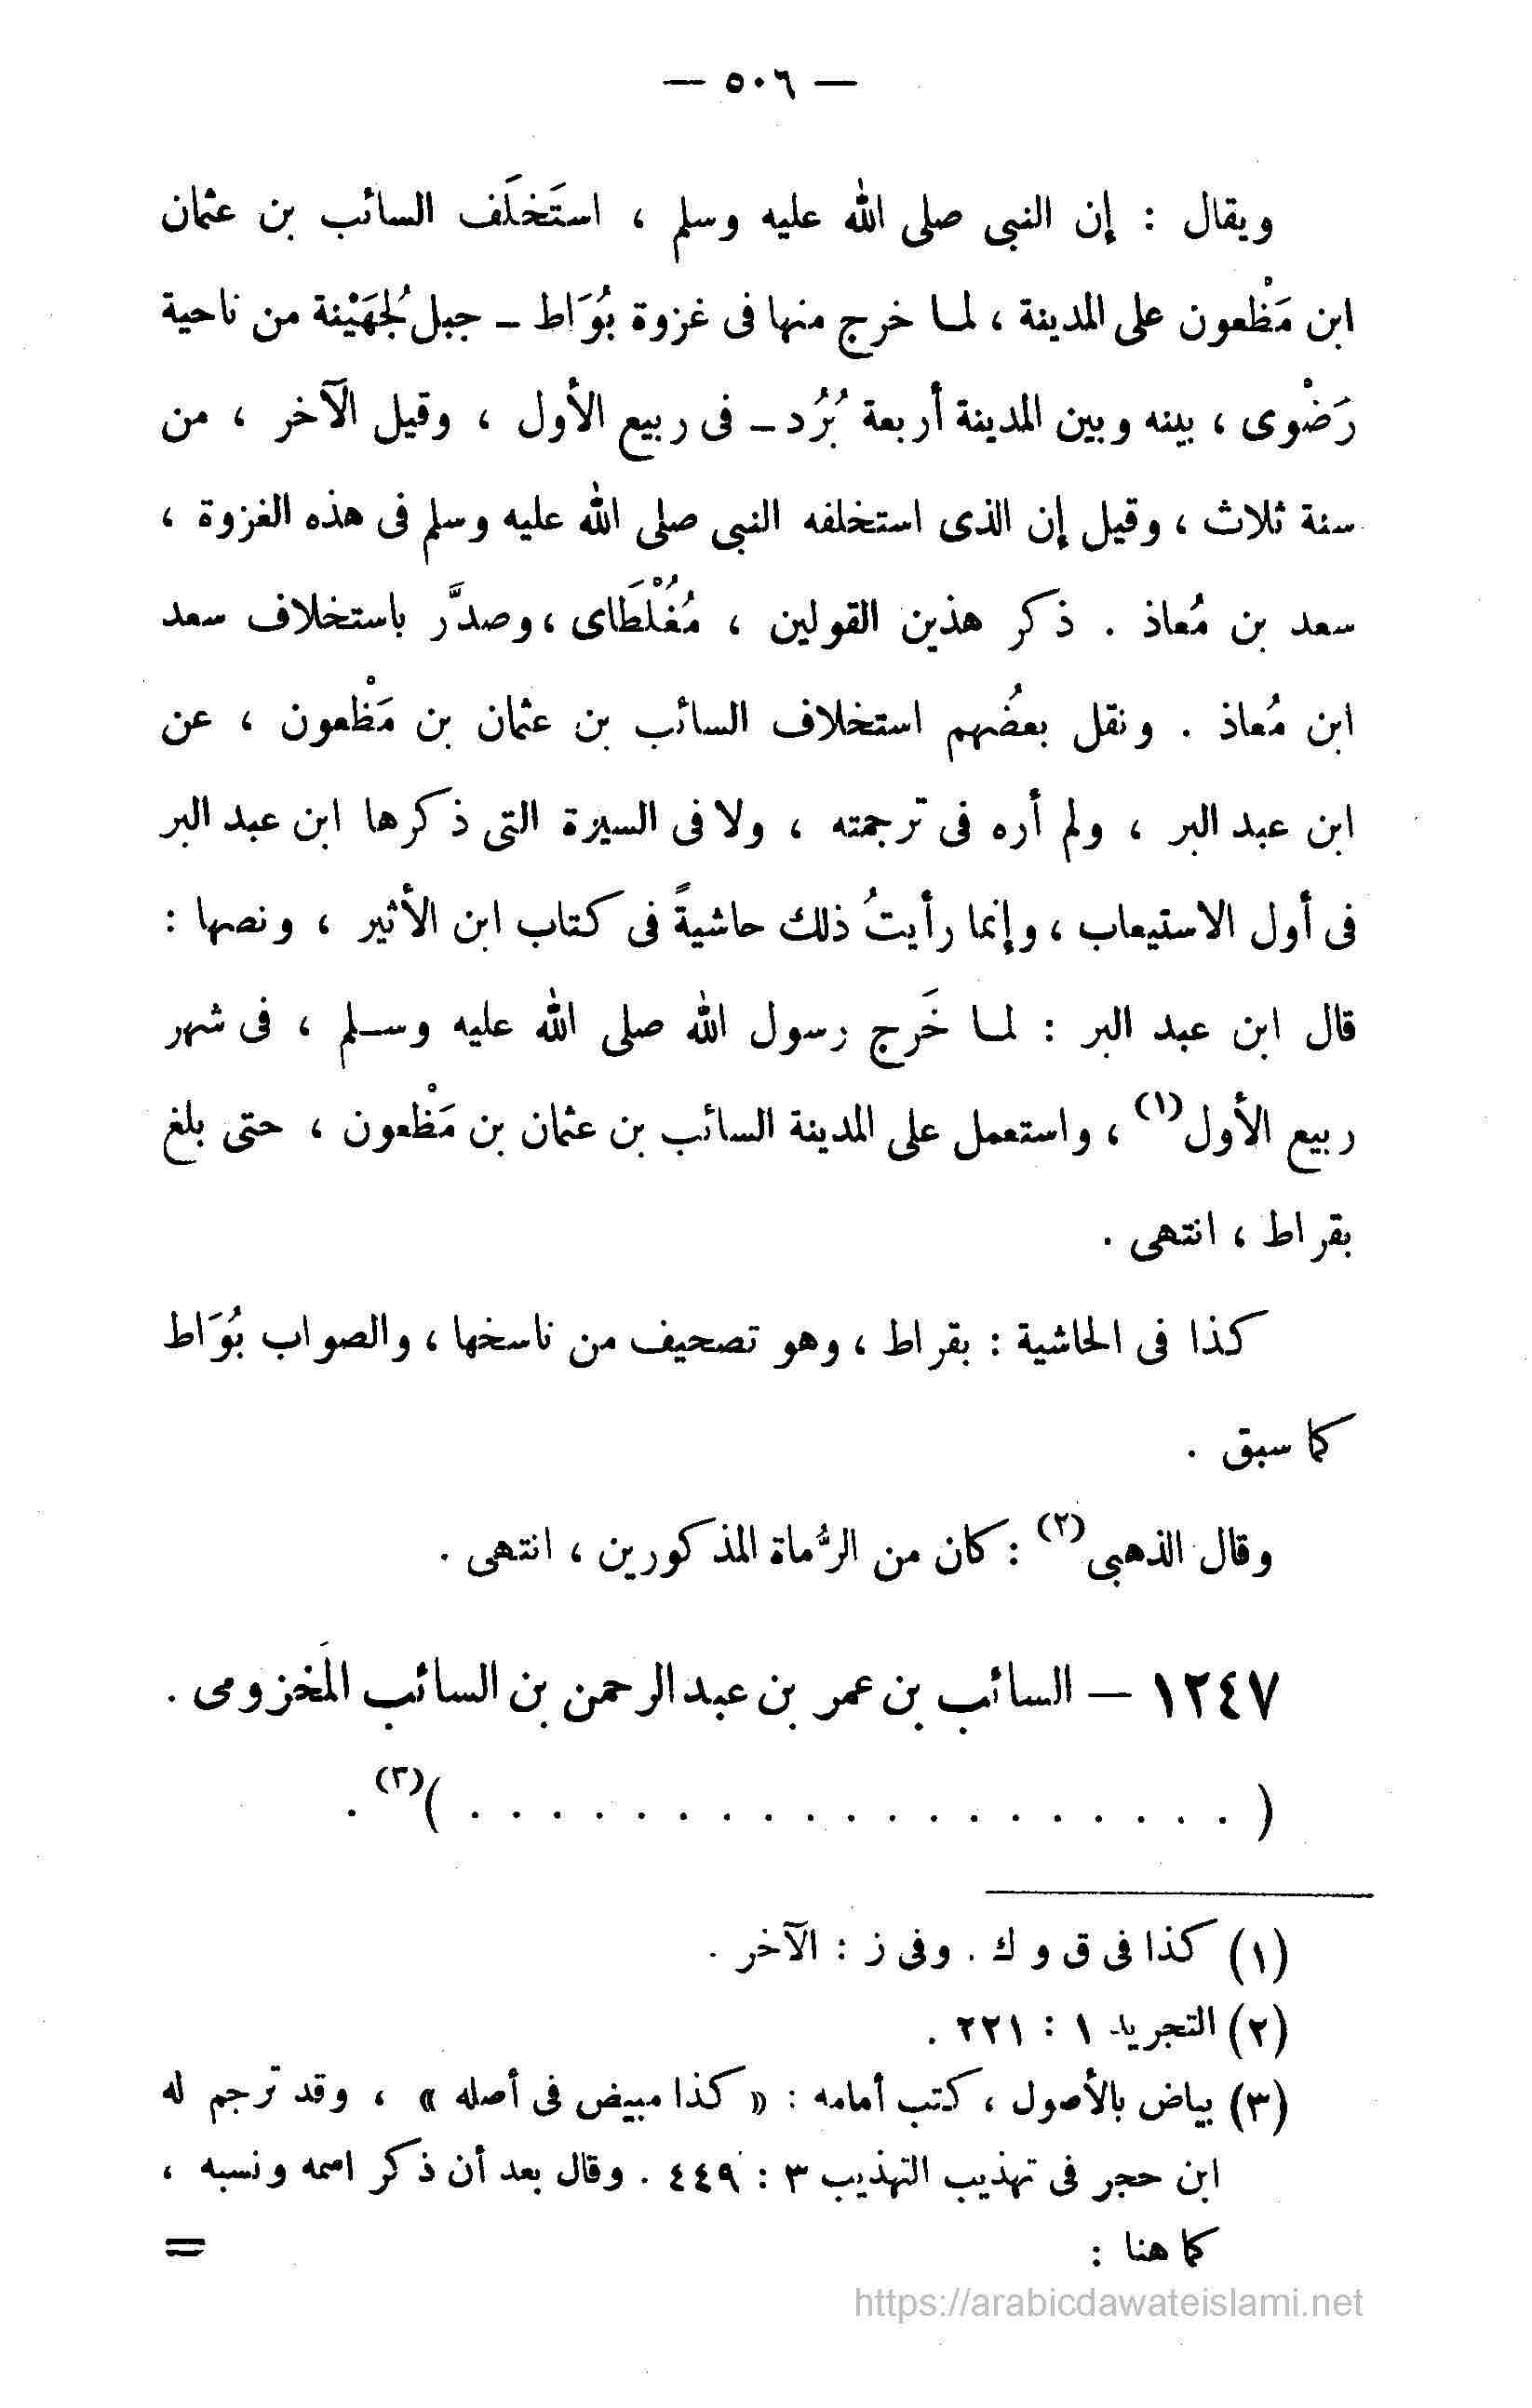 — ٥٠٦ —
ويقال : إن النبى صلى الله عليه وسلم ، استَخلَف السائب بن عثمان
ابن مَظْعون على المدينة ، لمـا خرج منها فى غزوة بُوَاط – جبل لجُهَيْنة من ناحية
رَضْوى ، بينه وبين المدينة أربعة بُرُد – فى ربيع الأول ، وقيل الآخر ، من
سنة ثلاث ، وقيل إن الذى استخلفه النبى صلى الله عليه وسلم فى هذه الغزوة ،
سعد بن مُعاذ . ذكر هذين القولين ، مُغُلْطَاى ، وصدَّر باستخلاف سعد
ابن مُعاذ . ونقل بعضُهم استخلاف السائب بن عثمان بن مَظْعون ، عن
ابن عبد البر ، ولم أره فى ترجمته ، ولا فى السيرة التى ذكرها ابن عبد البر
فى أول الاستيعاب ، وإنما رأيتُ ذلك حاشيةً فى كتاب ابن الأثير ، ونصها :
قال ابن عبد البر : لمـا خَرج رسول الله صلى الله عليه وسـلم ، فى شهر
ربيع الأول(١) ، واستعمل على المدينة السائب بن عثمان بن مَظْعون ، حتى بلغ
بقراط ، انتهى .
كذا فى الحاشية : بقراط ، وهو تصحيف من ناسخها ، والصواب بُوَاط
كما سبق .
وقال الذهبى(٢) : كان من الرُّماة المذكورين ، انتهى .
١٢٤٧ — السائب بن عمر بن عبد الرحمن بن السائب المَخزومى .
( . . . . . . . . . . . . . . . . . . . )(٣) .
(١) كذا فى ق و ك . وفى ز : الآخر .
(٢) التجريد ١ : ٢٢١ .
(٣) بياض بالأصول ، كتب أمامه : « كذا مبيض فى أصله » ، وقد ترجم له
ابن حجر فى تهذيب التهذيب ٣ : ٤٤٩ . وقال بعد أن ذكر اسمه ونسبه ،
كما هنا : =
https://arabicdawateislami.net